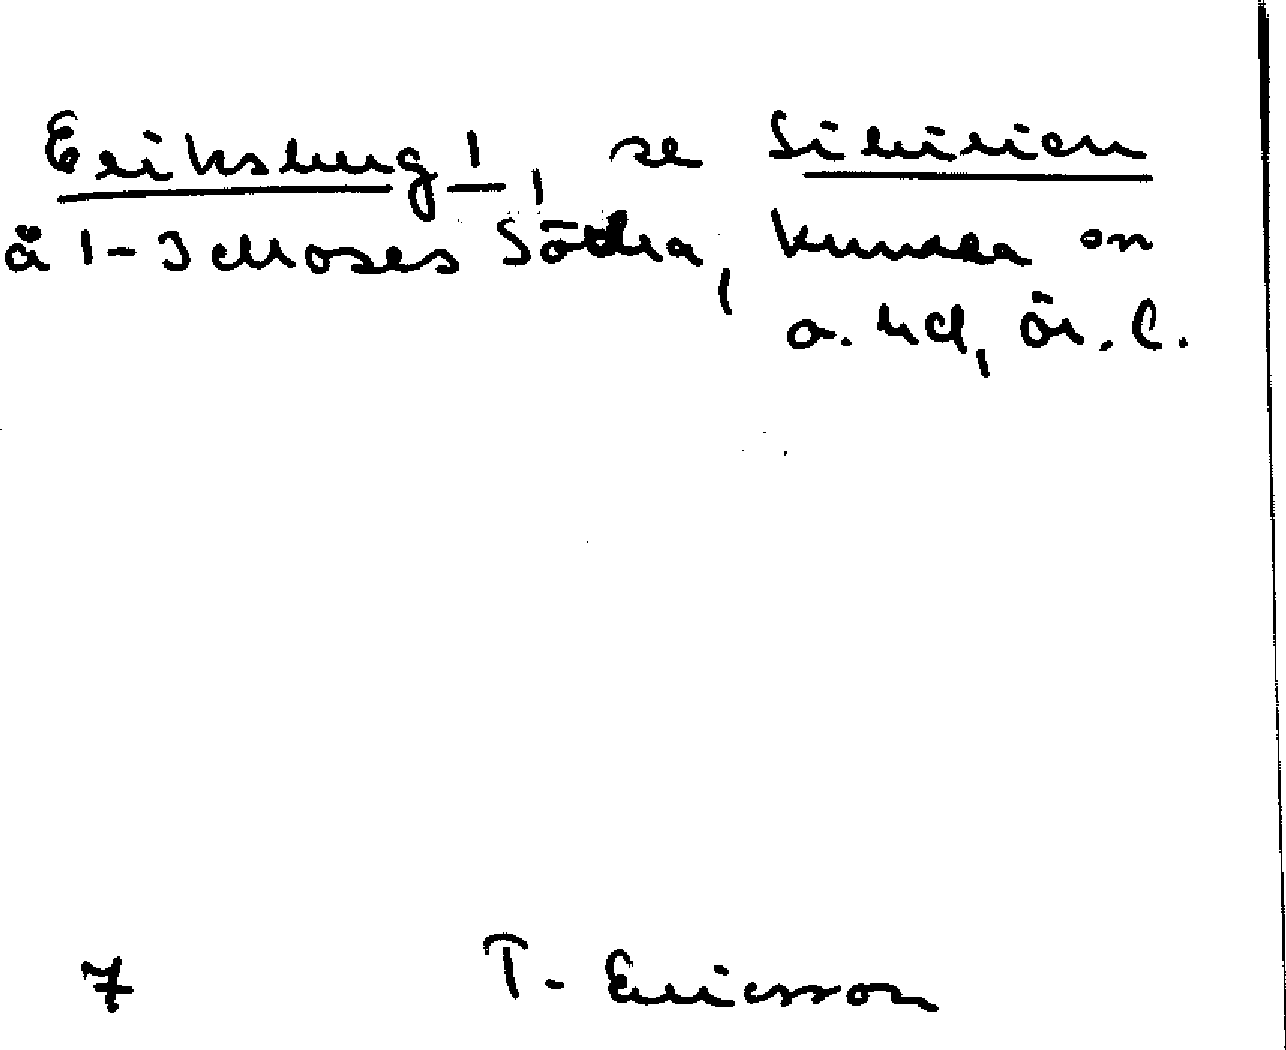 Eriksberg 1, se Sibirien
å 1-3 Moses Södra, Kumla sn
o. hd, Ör. l.
7 T. Ericsson